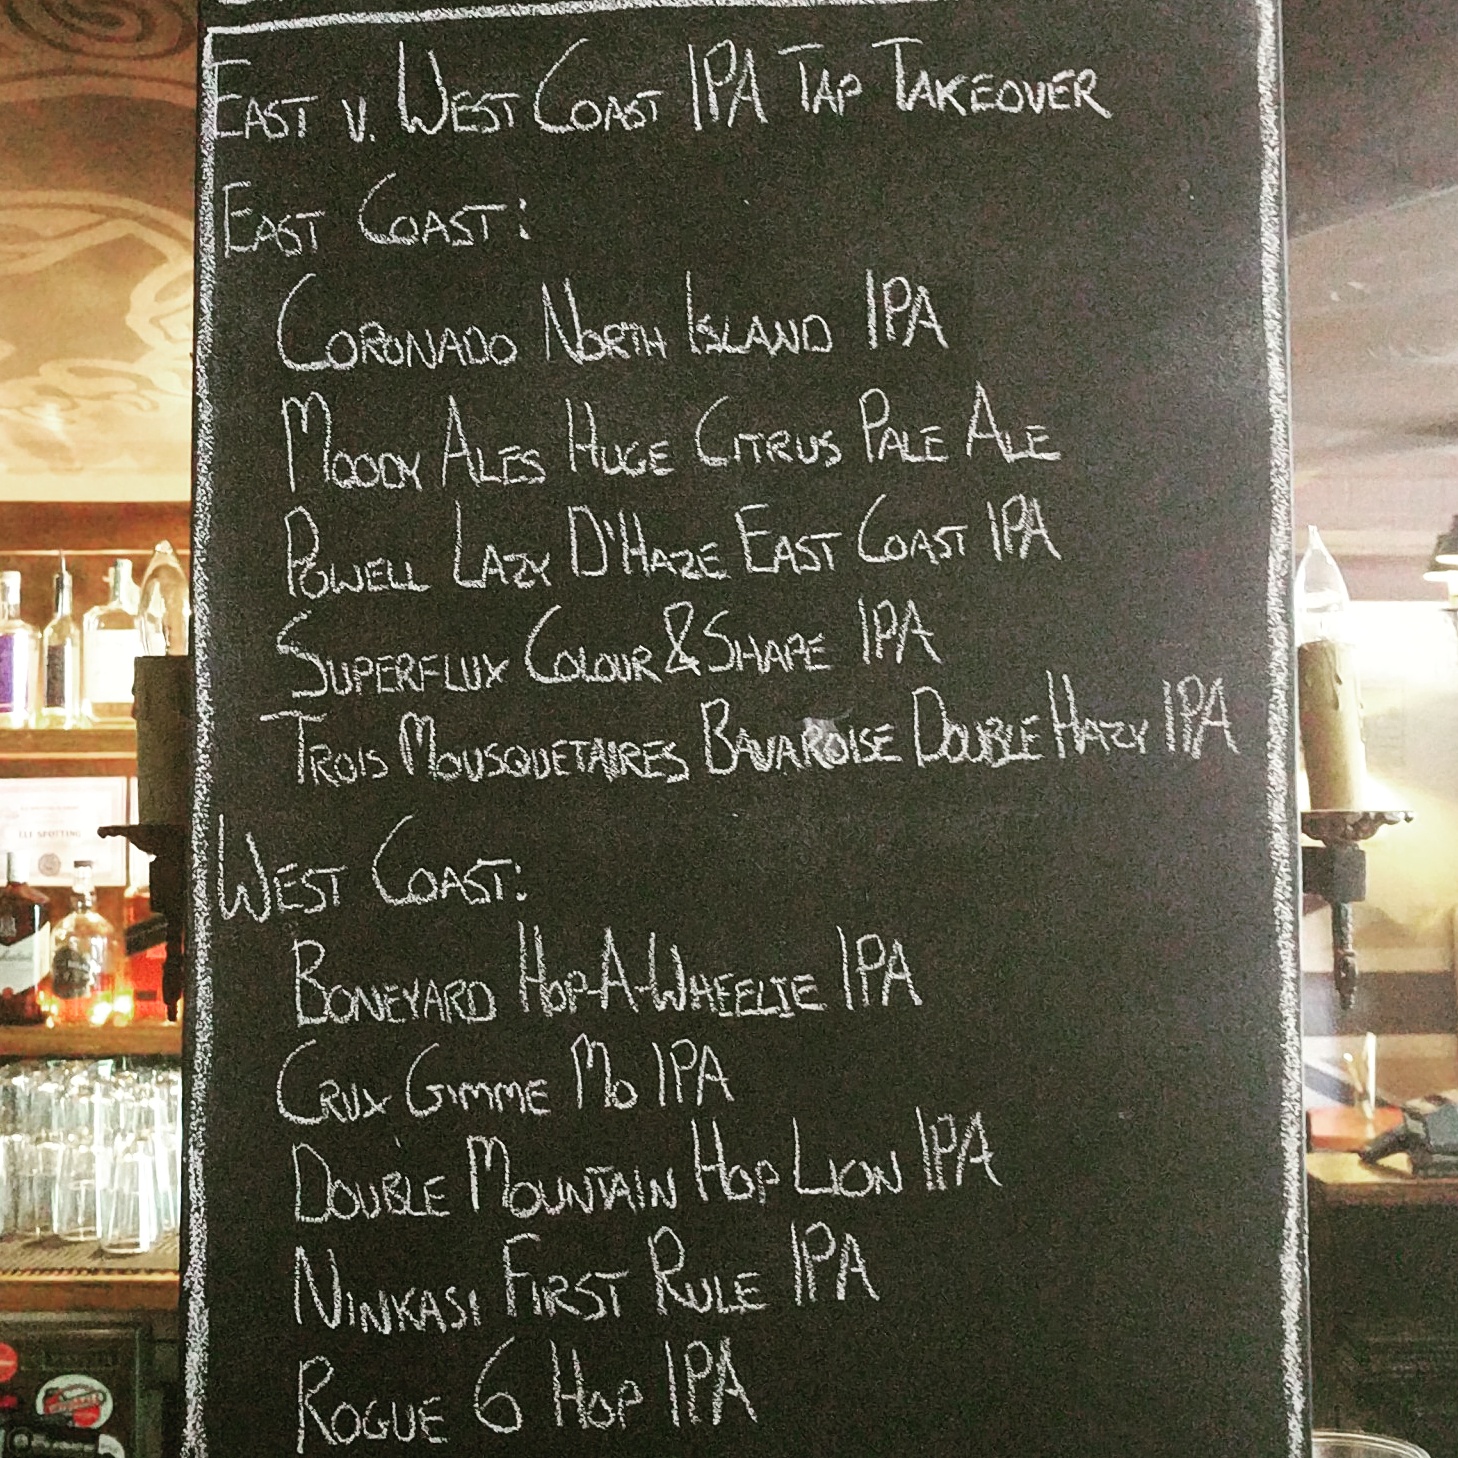 EAST V. WEST COAST IPA TAP TAKEOVER
EAST COAST:
CORONADO NORTH ISLAND IPA
MOODY ALES HUGE CITRUS PALE ALE
POWELL LAZY D'HAZE EAST COAST IPA
SUPERFLUX COLOUR & SHAPE IPA
TROIS MOUSQUETAIRES BAVAROISE DOUBLE HAZY IPA
WEST COAST:
BONEYARD HOP-A-WHEELIE IPA
CRUX GIMME MO IPA
DOUBLE MOUNTAIN HOP LION IPA
NINKASI FIRST RULE IPA
ROGUE 6 HOP IPA